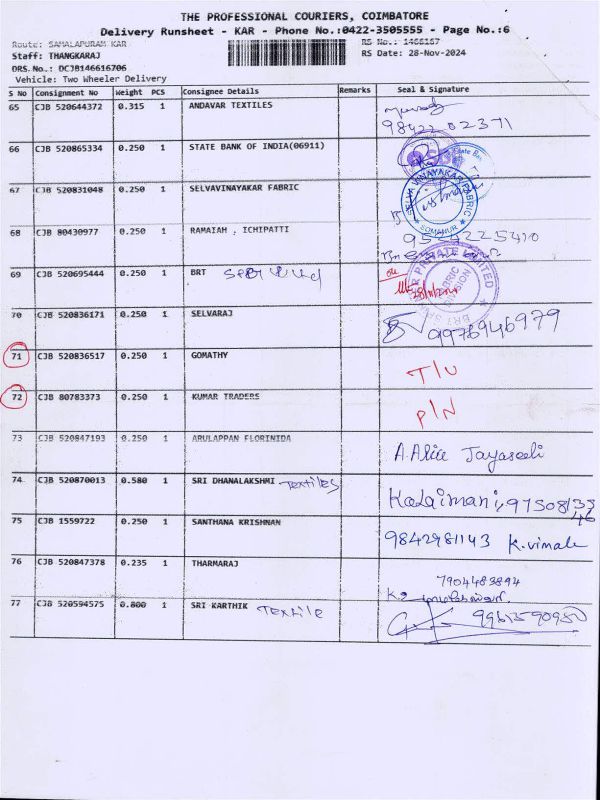 THE PROFESSIONAL COURIERS, COIMBATORE
Delivery Runsheet - KAR - Phone No.:0422-3505555 - Page No.:6
Route: SAMALAPURAM KAR
RS No.: 1466167
Staff: THANGKARAJ
RS Date: 28-Nov-2024
DRS.No.: DCJB146616706
Vehicle: Two Wheeler Delivery
S No Consignment No Weight PCS Consignee Details Remarks Seal & Signature
65 CJB 520644372 0.315 1 ANDAVAR TEXTILES
98422 02371
66 CJB 520865334 0.250 1 STATE BANK OF INDIA(06911)
67 CJB 520831048 0.250 1 SELVAVINAYAKAR FABRIC
SELVA VINAYAKAR FABRIC
SOMANUR
68 CJB 80430977 0.250 1 RAMAIAH , ICHIPATTI
69 CJB 520695444 0.250 1 BRT
PRIVATE LIMITED
FABRIC DIVISION
70 CJB 520836171 0.250 1 SELVARAJ
9976946979
71 CJB 520836517 0.250 1 GOMATHY T/U
72 CJB 80783373 0.250 1 KUMAR TRADERS P/N
73 CJB 520847193 0.250 1 ARULAPPAN FLORINIDA
A.Alice Jayaseeli
74 CJB 520870013 0.580 1 SRI DHANALAKSHMI Textiles
Kalaimani, 97508133
46
75 CJB 1559722 0.250 1 SANTHANA KRISHNAN
9842981143 K.vimale
76 CJB 520847378 0.235 1 THARMARAJ
7904483894
77 CJB 520594575 0.800 1 SRI KARTHIK Textile